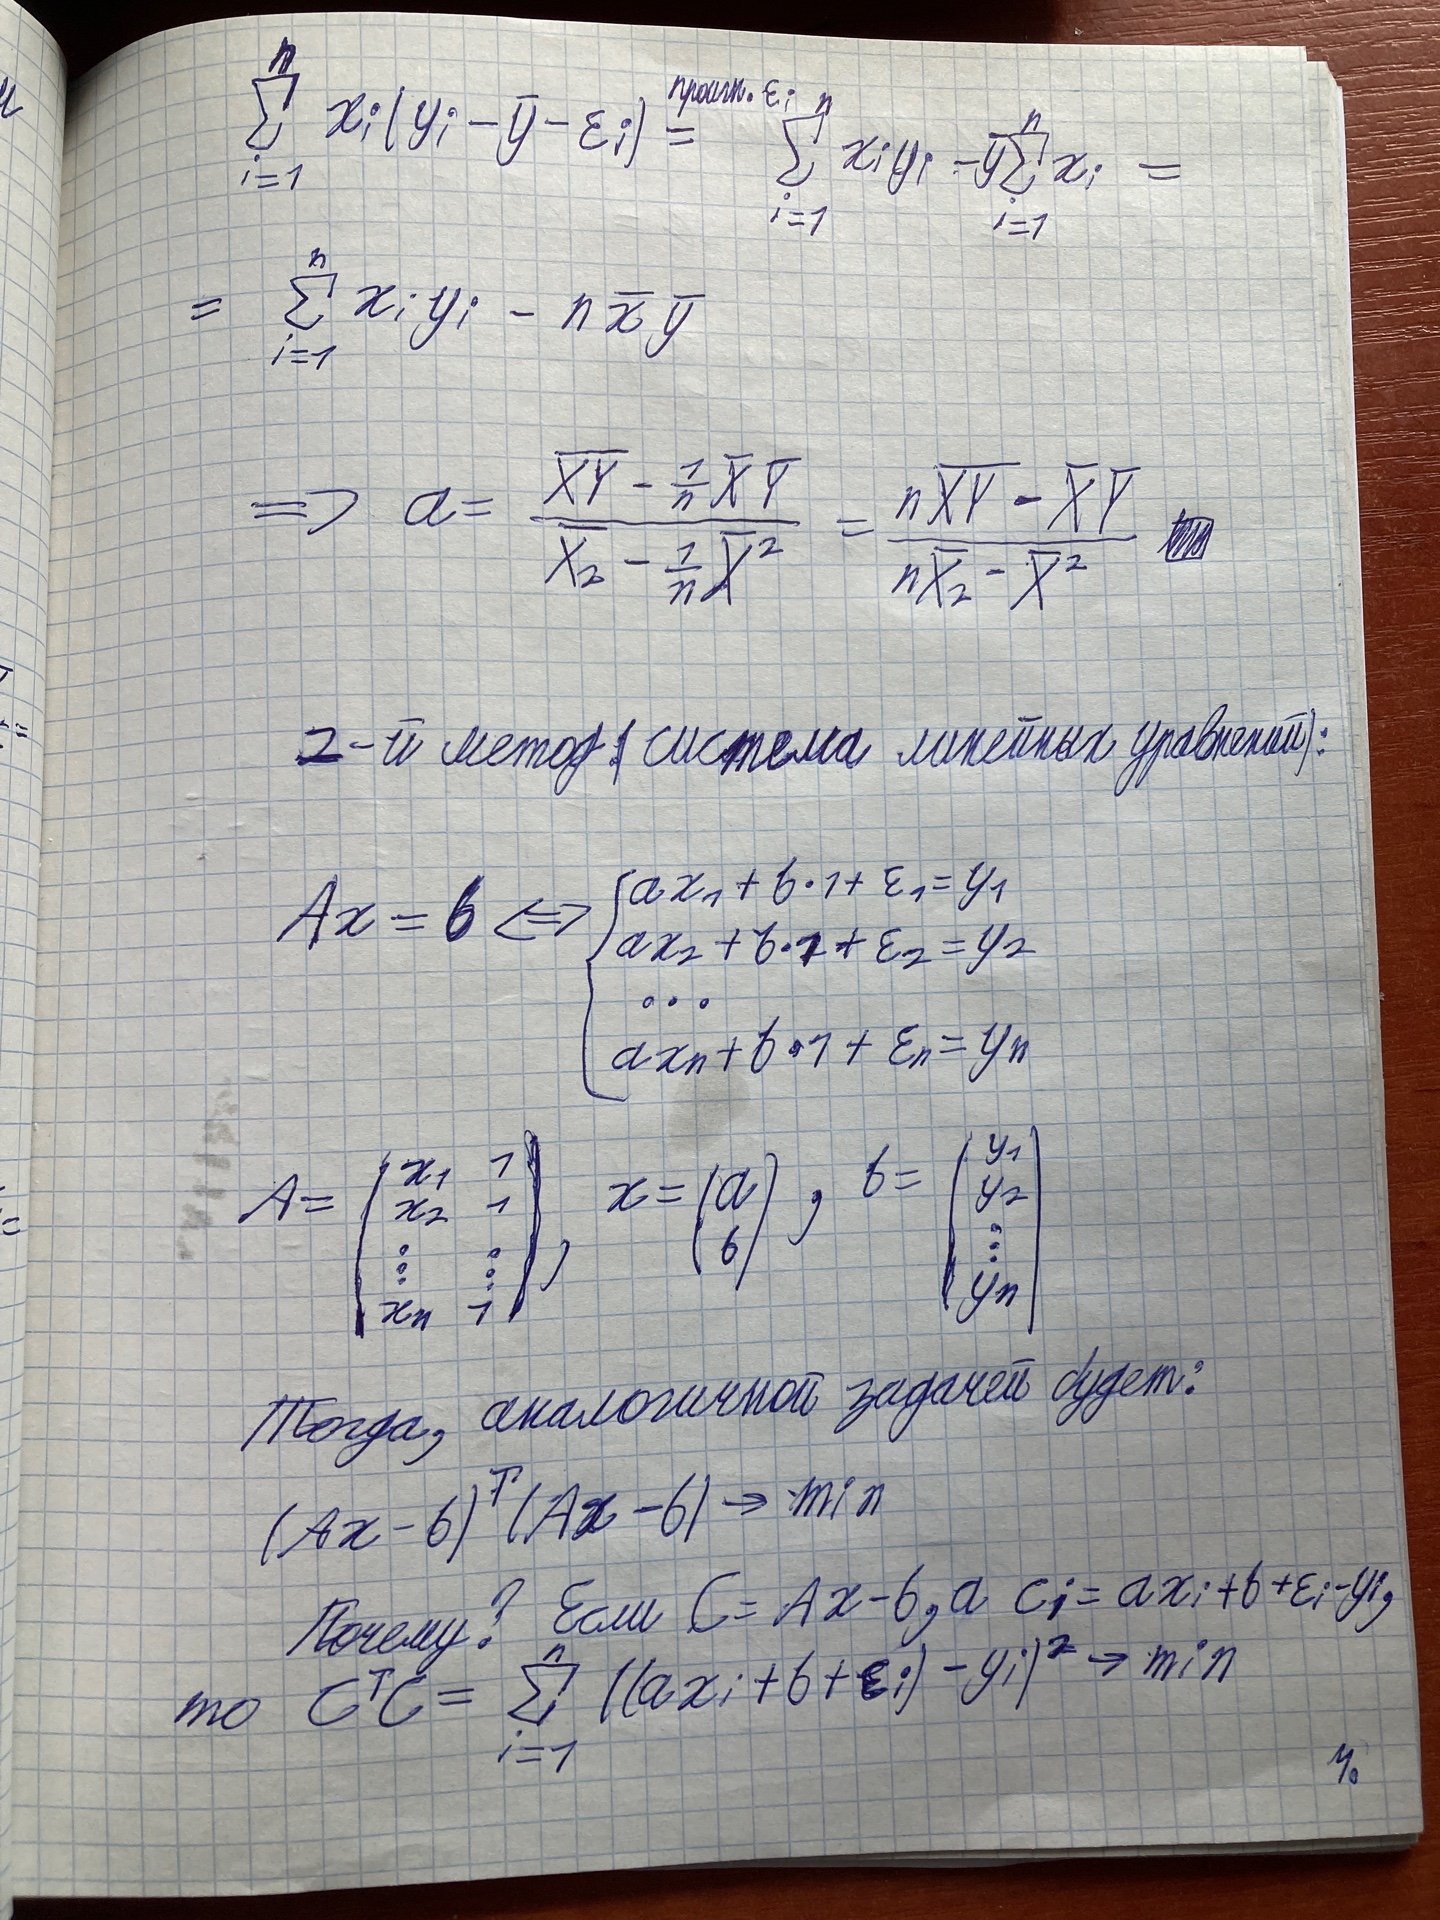 ∑_{i=1}^{n} x_i(y_i - ȳ - ε_i) =^{проигн. ε_i} ∑_{i=1}^{n} x_i y_i - ȳ ∑_{i=1}^{n} x_i =
= ∑_{i=1}^{n} x_i y_i - n x̄ ȳ
=> a = (\overline{XY} - \frac{1}{n} \overline{X} \overline{Y}) / (\overline{X}_2 - \frac{1}{n} \overline{X}^2) = (n\overline{XY} - \overline{X} \overline{Y}) / (n\overline{X}_2 - \overline{X}^2)
2-й метод (система линейных уравнений):
Ax = b <=> { ax_1 + b·1 + ε_1 = y_1
ax_2 + b·1 + ε_2 = y_2
...
ax_n + b·1 + ε_n = y_n
A = (x_1 1
x_2 1
⋮ ⋮
x_n 1), x = (a
b), b = (y_1
y_2
⋮
y_n)
Тогда, аналогичной задачей будет:
(Ax - b)^T (Ax - b) → min
Почему? Если C = Ax - b, а c_i = ax_i + b + ε_i - y_i,
то C^T C = ∑_{i=1}^{n} ((ax_i + b + ε_i) - y_i)^2 → min